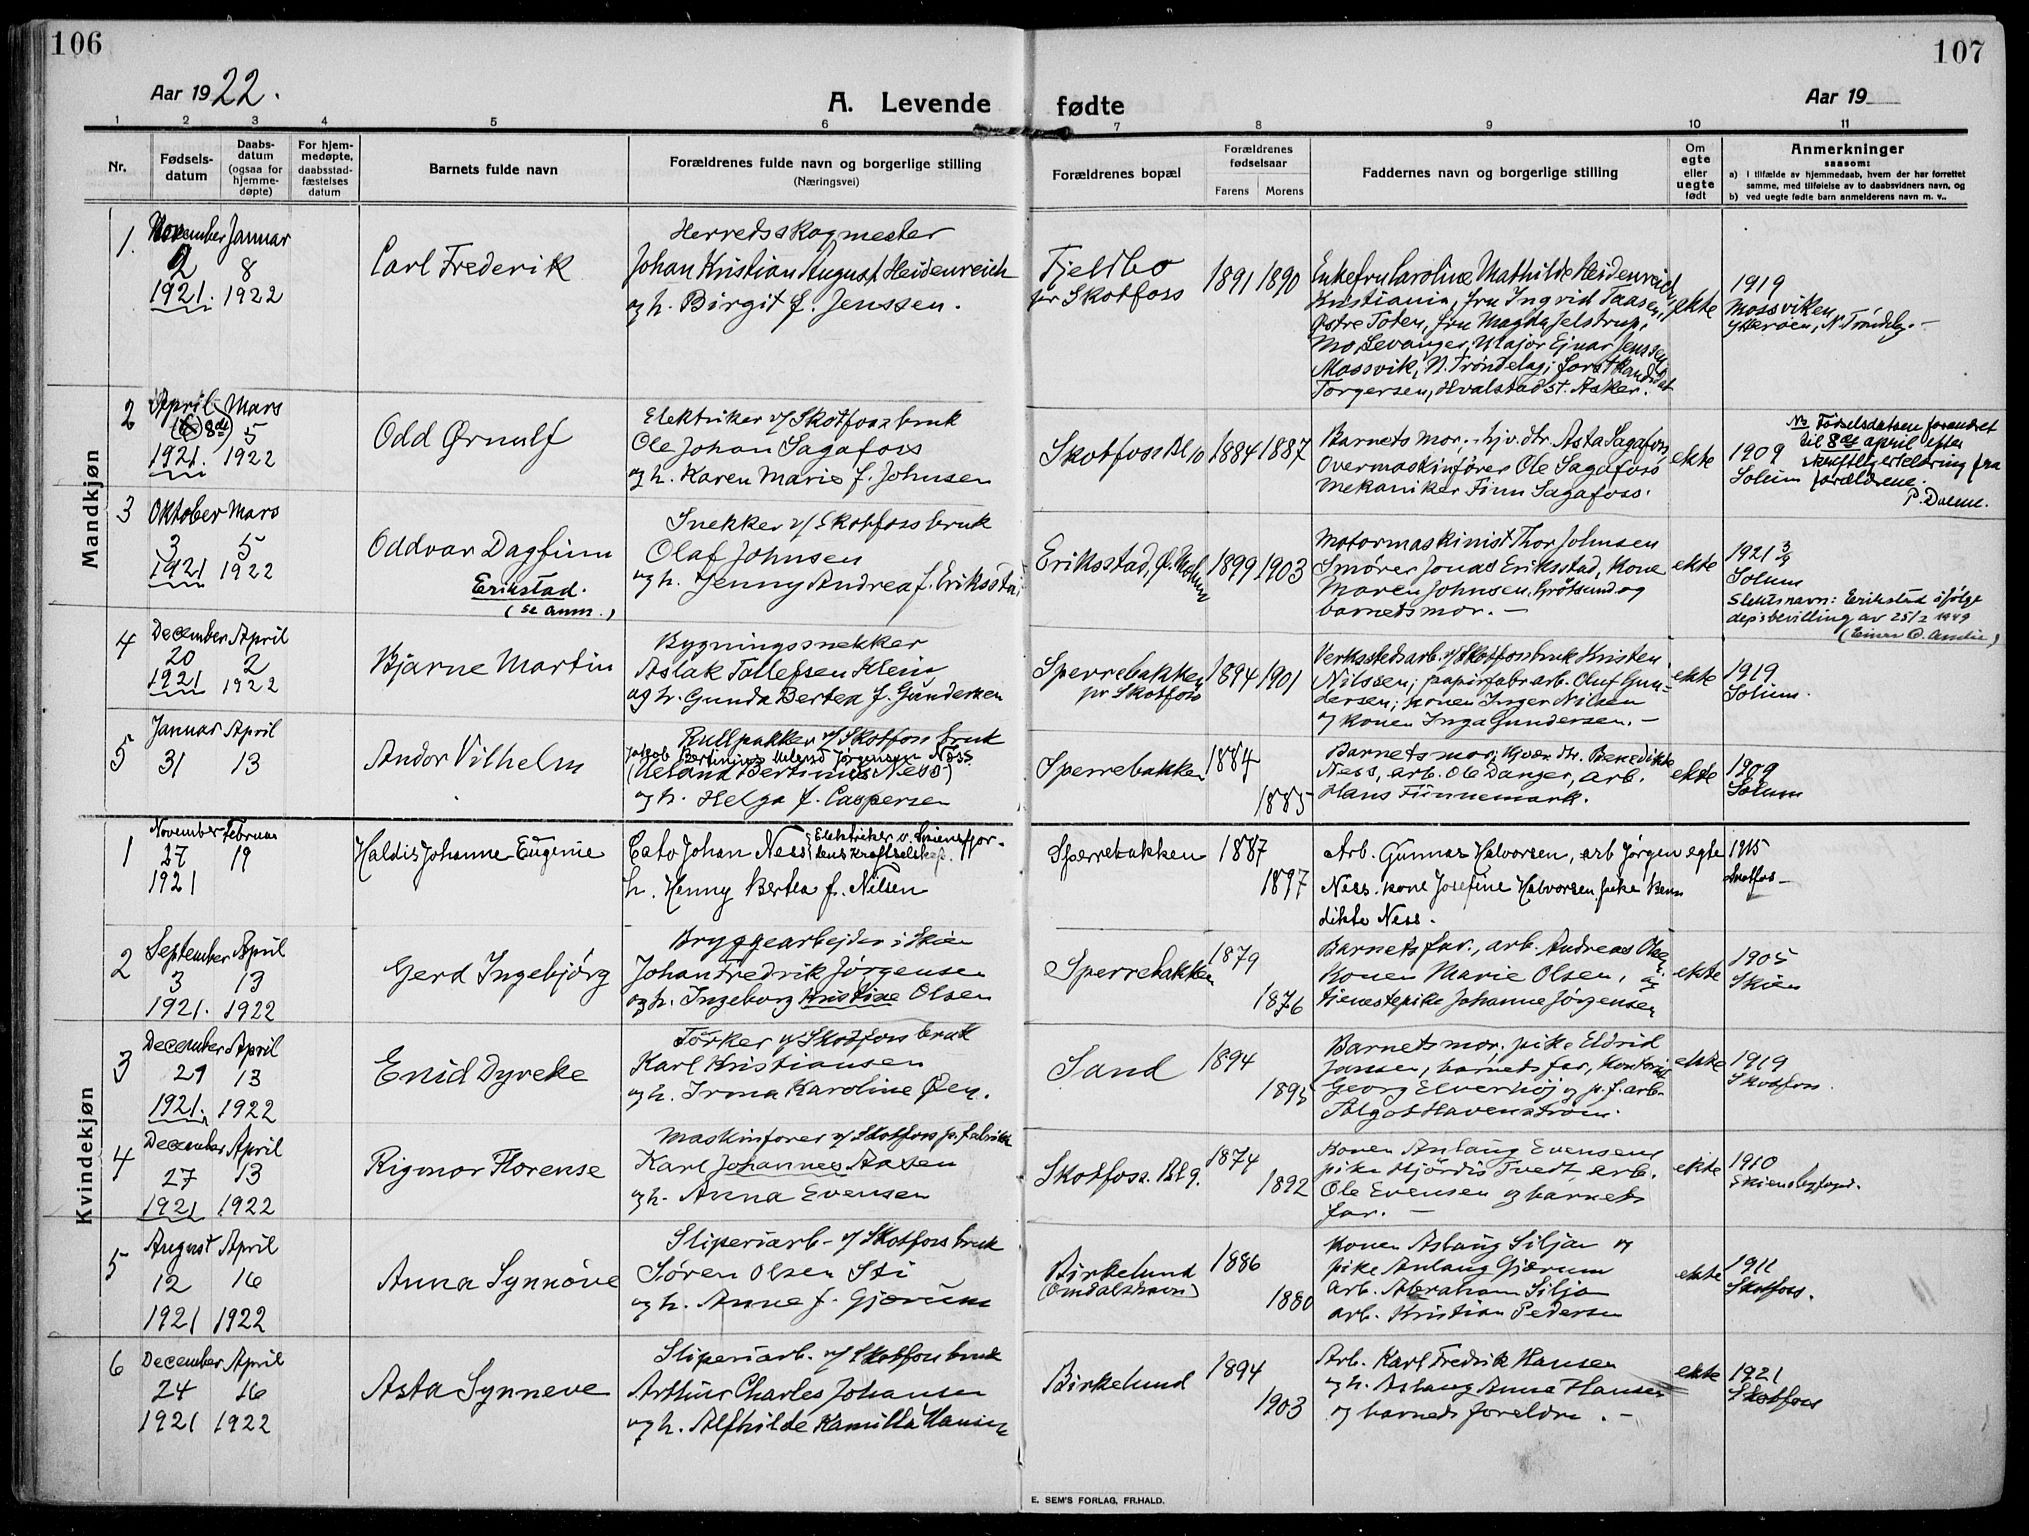 106
107
Aar 1922.
A. Levende fødte
Aar 19
1 2 3 4 5 6 7 8 9 10 11
Nr.
Fødsels-
datum
Daabs-
datum
(ogsaa for
hjemme-
døpte)
For hjem-
medøpte,
daabsstad-
fæstelses
datum
Barnets fulde navn
Forældrenes fulde navn og borgerlige stilling
(Næringsvei)
Forældrenes bopæl
Forældrenes
fødselsaar
Farens Morens
Faddernes navn og borgerlige stilling
Om
egte
eller
uegte
født
Anmerkninger
saasom:
a) I tilfælde av hjemmedaab, hvem der har forrettet
samme, med tilføielse av to daabsvidners navn, og
b) ved uegte fødte barn anmelderens navn m. v..
Mandkjøn
1. November Januar
2 8
1921. 1922
Carl Frederik
Herredsskogmester
Johan Kristian August Heidenreich
og h. Birgit f. Jenssen.
Fjeldbo
pr Skotfoss
1891 1890
Enkefru Caroline Mathilde Heidenreich
Kristiania, fru Ingrid Taasen,
Østre Toten, fru Magda Jelstrup,
Mo, Levanger, Major Ejnar Jenssen
Mossvik, N. Trøndelag; forstkandidat
Torgersen, Hvalstad st. Asker.
ekte
1919
Mossviken
Ytterøen, N. Trøndelag. -
2 April Mars
8de 5
1921. 1922
Odd Ørnulf
Elektriker v/ Skotfoss bruk
Ole Johan Sagafoss
og h. Karen Marie f. Johnsen
Skotfoss Bl 10
1884 1887
Barnets mor. hjv. dtr. Asta Sagafoss
Overmaskinfører Ole Sagafoss
mekaniker Finn Sagafoss.
ekte
1909
Solum
Nb Fødselsdatoen forandret
til 8de april efter
skriftlig erklæring fra
forældrene.
3 Oktober Mars
3 5
1921 1922
Oddvar Dagfinn
Erikstad.
(se anm.)
Snekker v/ Skotfoss bruk
Olaf Johnsen
og h. Jenny Andrea f. Eriksstad
Eriksstad,
1899 1903
Motormaskinist Thor Johnsen
Smører Jonas Eriksstad, Kone
Maren Johnsen, Grötsund og
barnets mor. -
ekte
1921
Solum
Slektsnavn: Erikstad ifølge
dep.s bevilling av 25/2 1949
4 December April
20 2
1921 1922
Bjarne Martin
Bygningssnekker
Aslak Tollefsen Klein
og h. Gunda Bertea f. Gundersen
Sperrebakken
pr Skotfoss
1894 1901
Verkstedsarb. v/ Skotfoss bruk Kristen
Nilssen; papirfabr arb. Oluf Gun-
dersen; konen Inger Nilsen
og konen Inga Gundersen. -
ekte
1919
Solum.
5 Januar April
31 13
Andor Vilhelm
Rullpakker v/ Skotfoss bruk
Jakob Bertinius Ueland Jørgensen Ness
(Ueland Bertinius Ness)
og h. Helga f. Caspersen
Sperrebakken
1884
1885
Barnets mor, hjv. dtr. Benedikte
Ness, arb. Ole Danger, arb.
Hans Finnemark.
ekte
1909
Solum
Kvindekjøn
1 November Februar
27 19
1921
Haldis Johanne Eugenie
Cato Johan Ness Elektriker v. Skiensfjor-
dens kraftselskap.
h. Henny Bertea f. Nilsen
Sperrebakken
1887
1897
Arb. Gunnar Halvorsen, arb Jørgen
Ness. kone Josefine Halvorsen. pike Bene
dikte Ness.
egte
1915
Skotfos -
2 September April
3 13
1921. 1922
Gerd Ingebjørg
Bryggearbejder i Skien
Johan Fredrik Jørgensen
og h. Ingeborg Kristine Olsen
Sperrebakken
1879
1876
Barnets far., arb. Andreas Olsen,
Konen Marie Olsen, og
tjenestepike Johanne Jørgensen
ekte
1905
Skien
3 December April
29 13
1921. 1922
Enid Dyveke
Tørker v/ Skotfoss bruk
Karl Kristiansen
og h. Irma Karoline Øen.
Sand
1894
1895
Barnets mor. pike Eldrid
Jansen, barnets far, Kontorist
Georg Elverhöj og p. f. arb.
Algot Havenström.
ekte
1919
Skotfoss.
4 December April
27 13
1921 1922
Rigmor Florense
Maskinfører v/ Skotfoss p. fabrikk
Karl Johannes Aasen
og h. Anna Evensen
Skotfoss. Bl 9.
1874
1892
Konen Anlaug Evensen,
pike Hjördis Tvedt, arb.
Ole Evensen og barnets
far. -
ekte
1910
5 August April
12 16
1921 1922
Anna Synnøve
Sliperiarb. v/ Skotfoss bruk
Søren Olsen Sti
og h. Anne f. Gjærum
Birkelund
(Omdalshavn)
1886
1880
Konen Aslaug Siljan og
pike Anlaug Gjærum
arb. Abraham Siljan
arb. Kristian Pedersen
ekte
1911
Skotfoss.
6 December April
24 16
1921 1922
Asta Synneve
Sliperiarb. v/ Skotfoss bruk
Arthur Charles Johansen
og h. Alfhilde Kamilla Hansen
Birkelund
1894
1903
Arb. Karl Fredrik Hansen
og h. Aslaug Anna Hansen
og barnets foreldre. -
ekte
1921
Skotfoss
E. SEM'S FORLAG, FR.HALD.